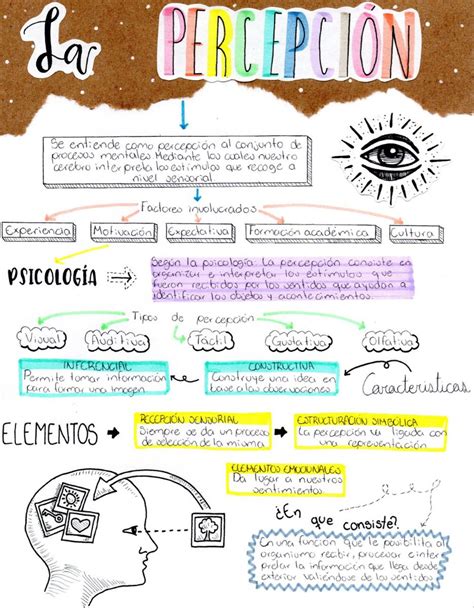 La PERCEPCIÓN
Se entiende como percepción al conjunto de
procesos mentales. Mediante los cuales nuestro
cerebro interpreta los estímulos que recoge a
nivel sensorial
Factores involucrados
Experiencia
Motivación
Expectativa
Formación académica
Cultura
PSICOLOGÍA
Según la psicología. La percepción consiste en
organizar e interpretar los estímulos que
fueron recibidos por los sentidos que ayudan a
identificar los objetos y acontecimientos.
Tipos de percepción
Visual
Auditiva
Táctil
Gustativa
Olfativa
INFERENCIAL
Permite tomar información
para formar una imagen
CONSTRUCTIVA
Construye una idea en
base a las observaciones
Características
ELEMENTOS
RECEPCIÓN SENSORIAL
Siempre se da un proceso
de selección de la misma
ESTRUCTURACIÓN SIMBÓLICA
La percepción va ligada con
una representación
ELEMENTOS EMOCIONALES
Da lugar a nuestros
sentimientos.
¿En
que consiste?
En una función que le posibilita al
organismo recibir, procesar e inter
pretar la información que llega desde
exterior valiéndose de los sentidos